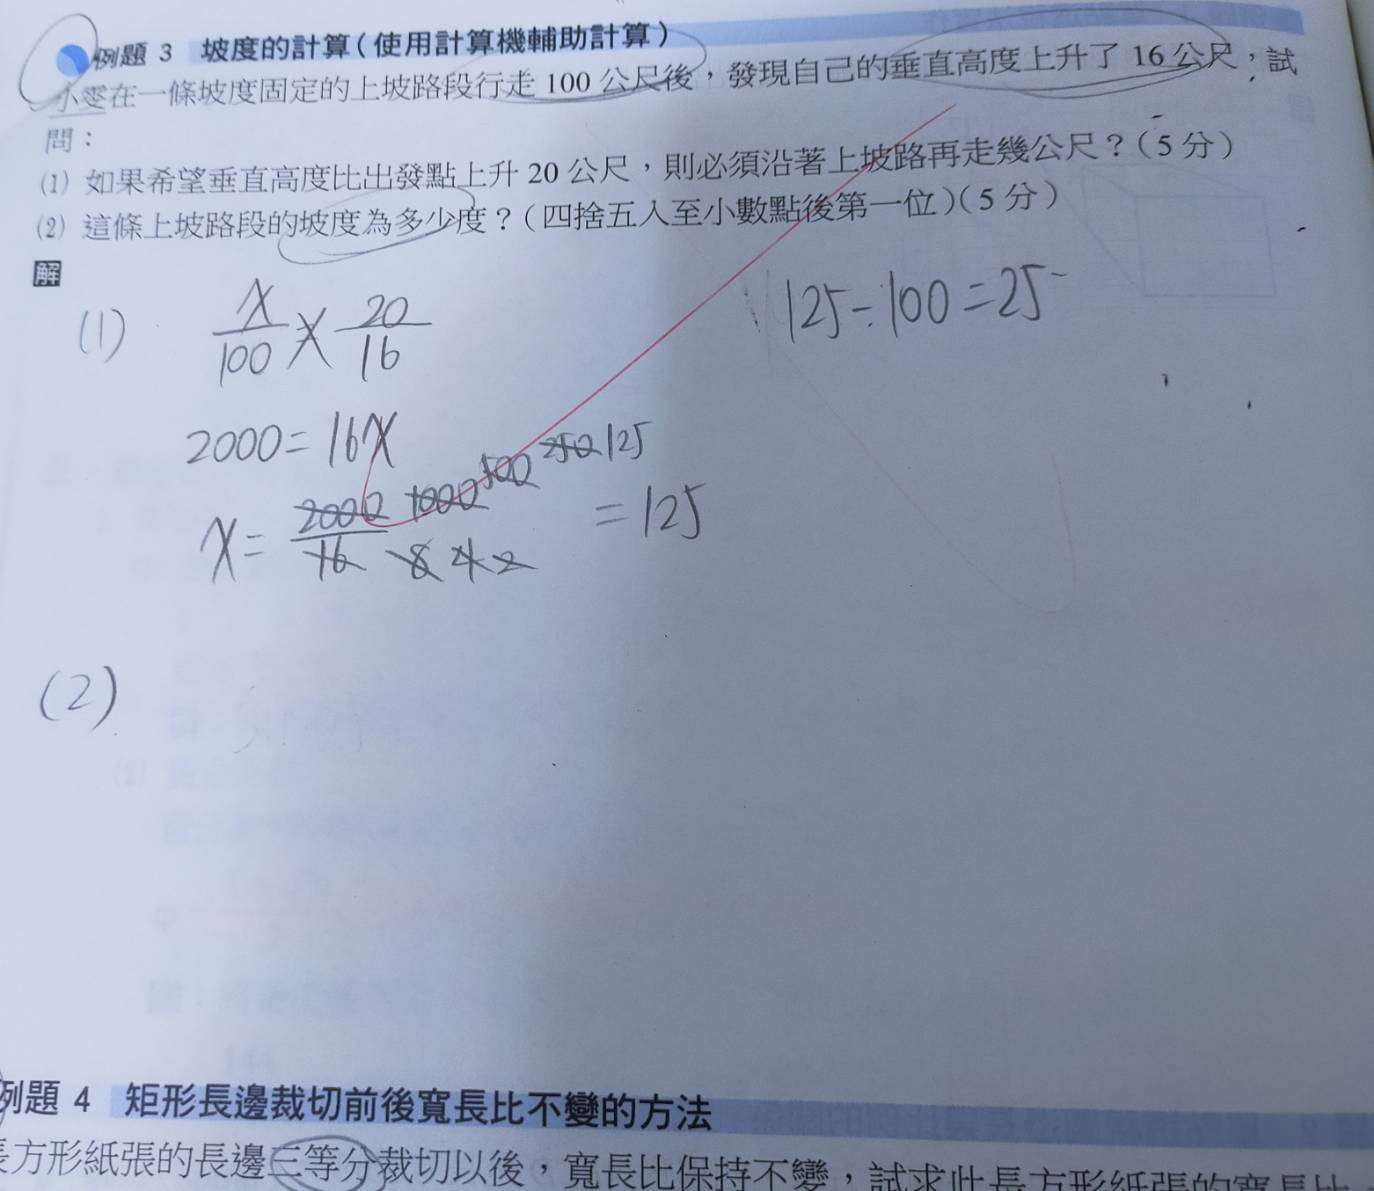 例題 3 坡度的計算(使用計算機輔助計算)
小雯在一條坡度固定的上坡路段行走 100 公尺後，發現自己的垂直高度上升了 16 公尺，試
問：
(1) 如果希望垂直高度比出發點上升 20 公尺，則必須沿著上坡路再走幾公尺？(5 分)
(2) 這條上坡路段的坡度為多少度？(四捨五入至小數點後第一位)(5 分)
解
(1) x/100 × 20/16
125-100=25
2000=16x
x= 2000/16 1000/8 500/4 250/2 125 =125
(2)
例題 4 矩形長邊裁切前後寬長比不變的方法
長方形紙張的長邊三等分裁切以後，寬長比保持不變，試求此長方形紙張的寬長比